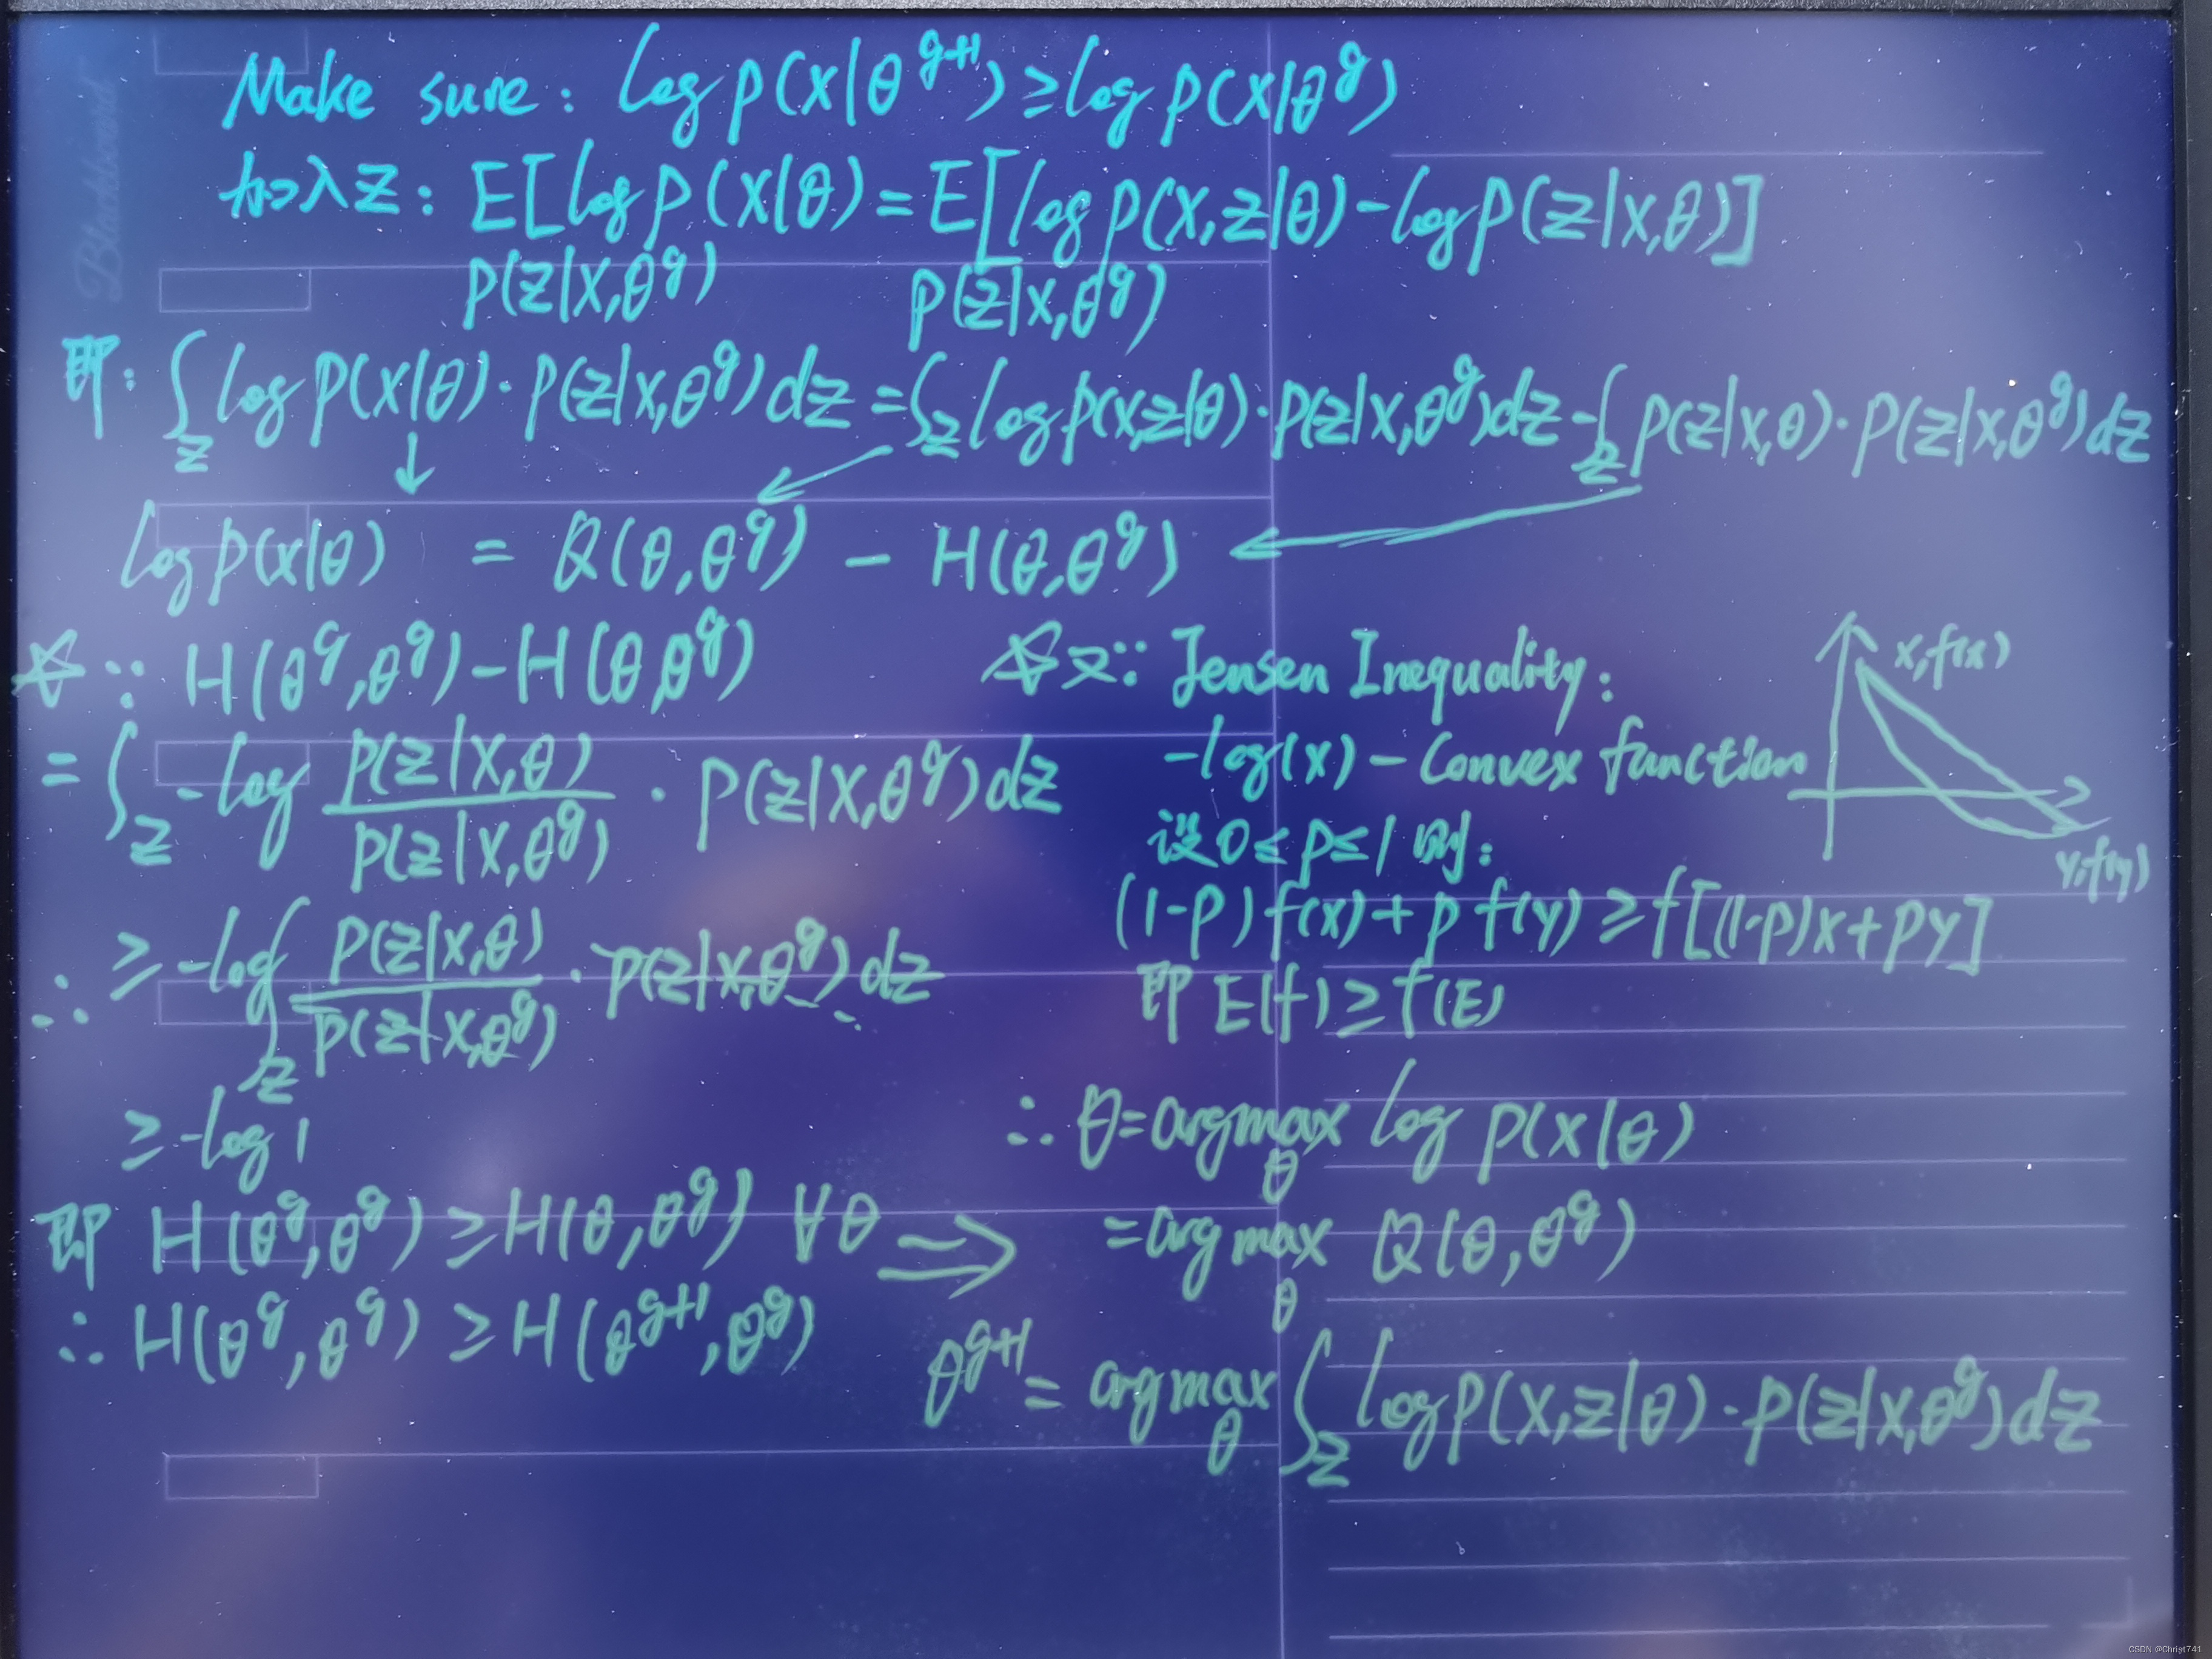 Blackboard
Make sure: log p(x|θ^{g+1}) ≥ log p(x|θ^g)
加入z: E[log p(x|θ) = E[log p(x,z|θ) - log p(z|x,θ)]
p(z|x,θ^g) p(z|x,θ^g)
即: ∫_z log p(x|θ)·p(z|x,θ^g)dz = ∫_z log p(x,z|θ)·p(z|x,θ^g)dz - ∫_z p(z|x,θ)·p(z|x,θ^g)dz
↓
log p(x|θ) = Q(θ,θ^g) - H(θ,θ^g)
☆∵ H(θ^g,θ^g) - H(θ,θ^g)
= ∫_z -log \frac{p(z|x,θ)}{p(z|x,θ^g)} · p(z|x,θ^g)dz
∴ ≥ -log ∫_z \frac{p(z|x,θ)}{p(z|x,θ^g)} · p(z|x,θ^g)dz
≥ -log 1
即 H(θ^g,θ^g) ≥ H(θ,θ^g) ∀θ ⇒
∴ H(θ^g,θ^g) ≥ H(θ^{g+1},θ^g)
☆又∵ Jensen Inequality:
-log(x) - Convex function
x,f(x)
y,f(y)
设 0≤p≤1 则:
(1-p)f(x)+p f(y) ≥ f[(1-p)x+py]
即 E(f) ≥ f(E)
∴ θ = argmax_θ log p(x|θ)
= argmax_θ Q(θ,θ^g)
θ^{g+1} = argmax_θ ∫_z log p(x,z|θ)·p(z|x,θ^g)dz
CSDN @Christ741